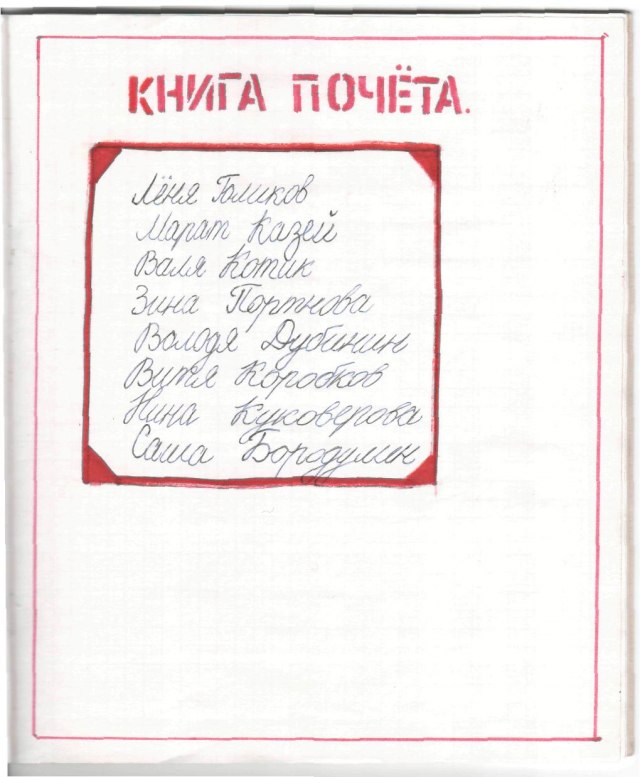 КНИГА ПОЧЁТА.
Лёня Голиков
Марат Казей
Валя Котик
Зина Портнова
Володя Дубинин
Витя Коробков
Нина Куковерова
Саша Бородулин